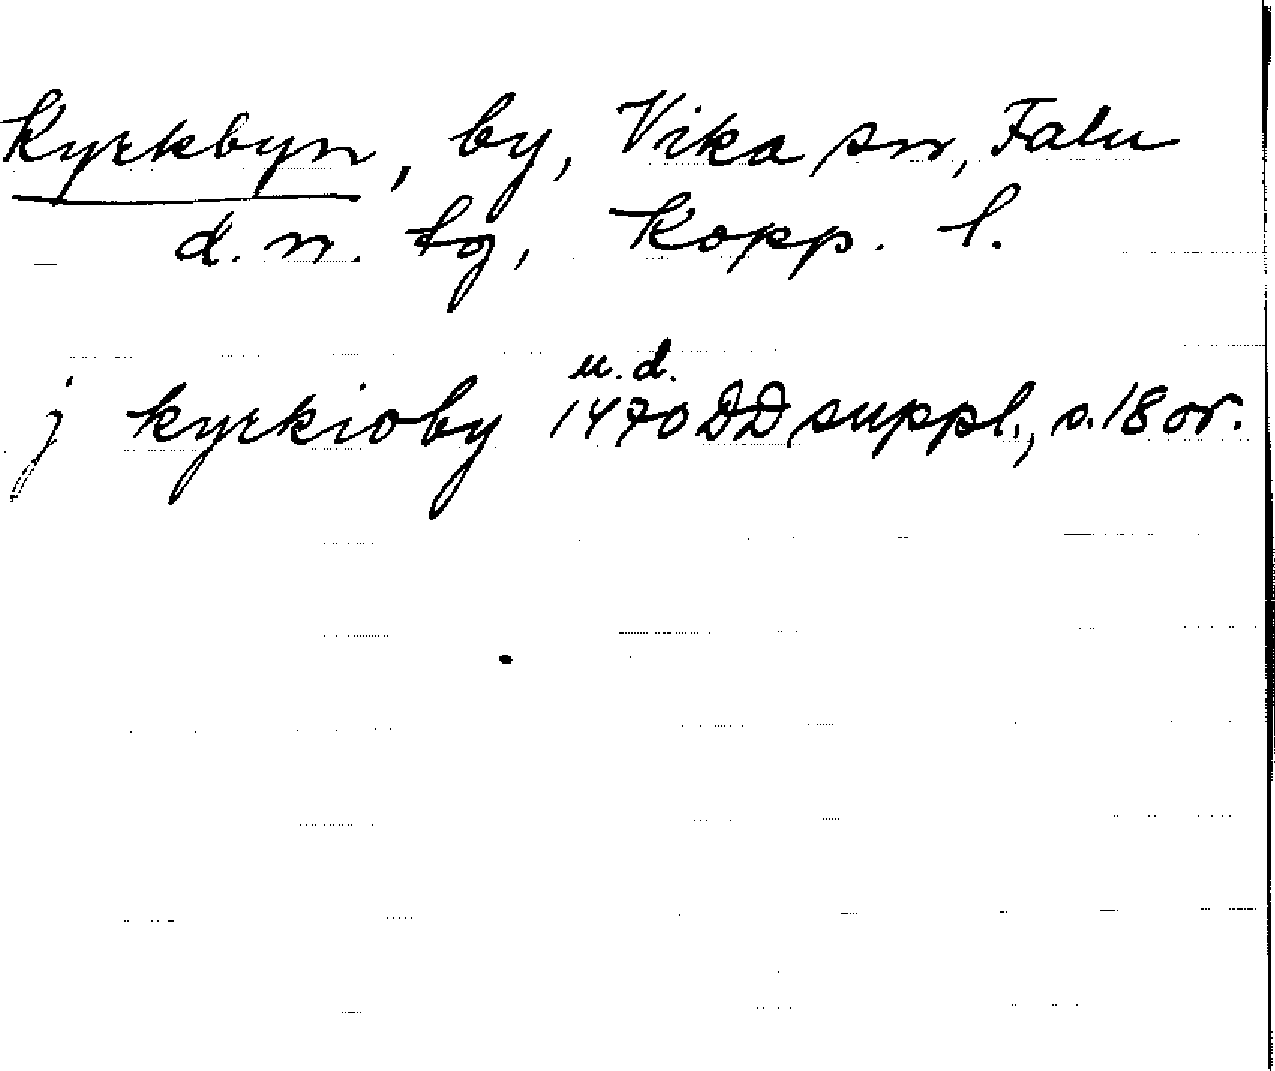 Kyrkbyn, by, Vika sn, Falu
d. n. tg, Kopp. l.
u. d.
j kyrkioby 1470 DD suppl., s. 18 or.